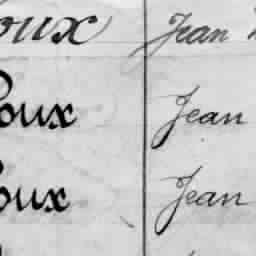 oux Jean
oux Jean
oux Jean